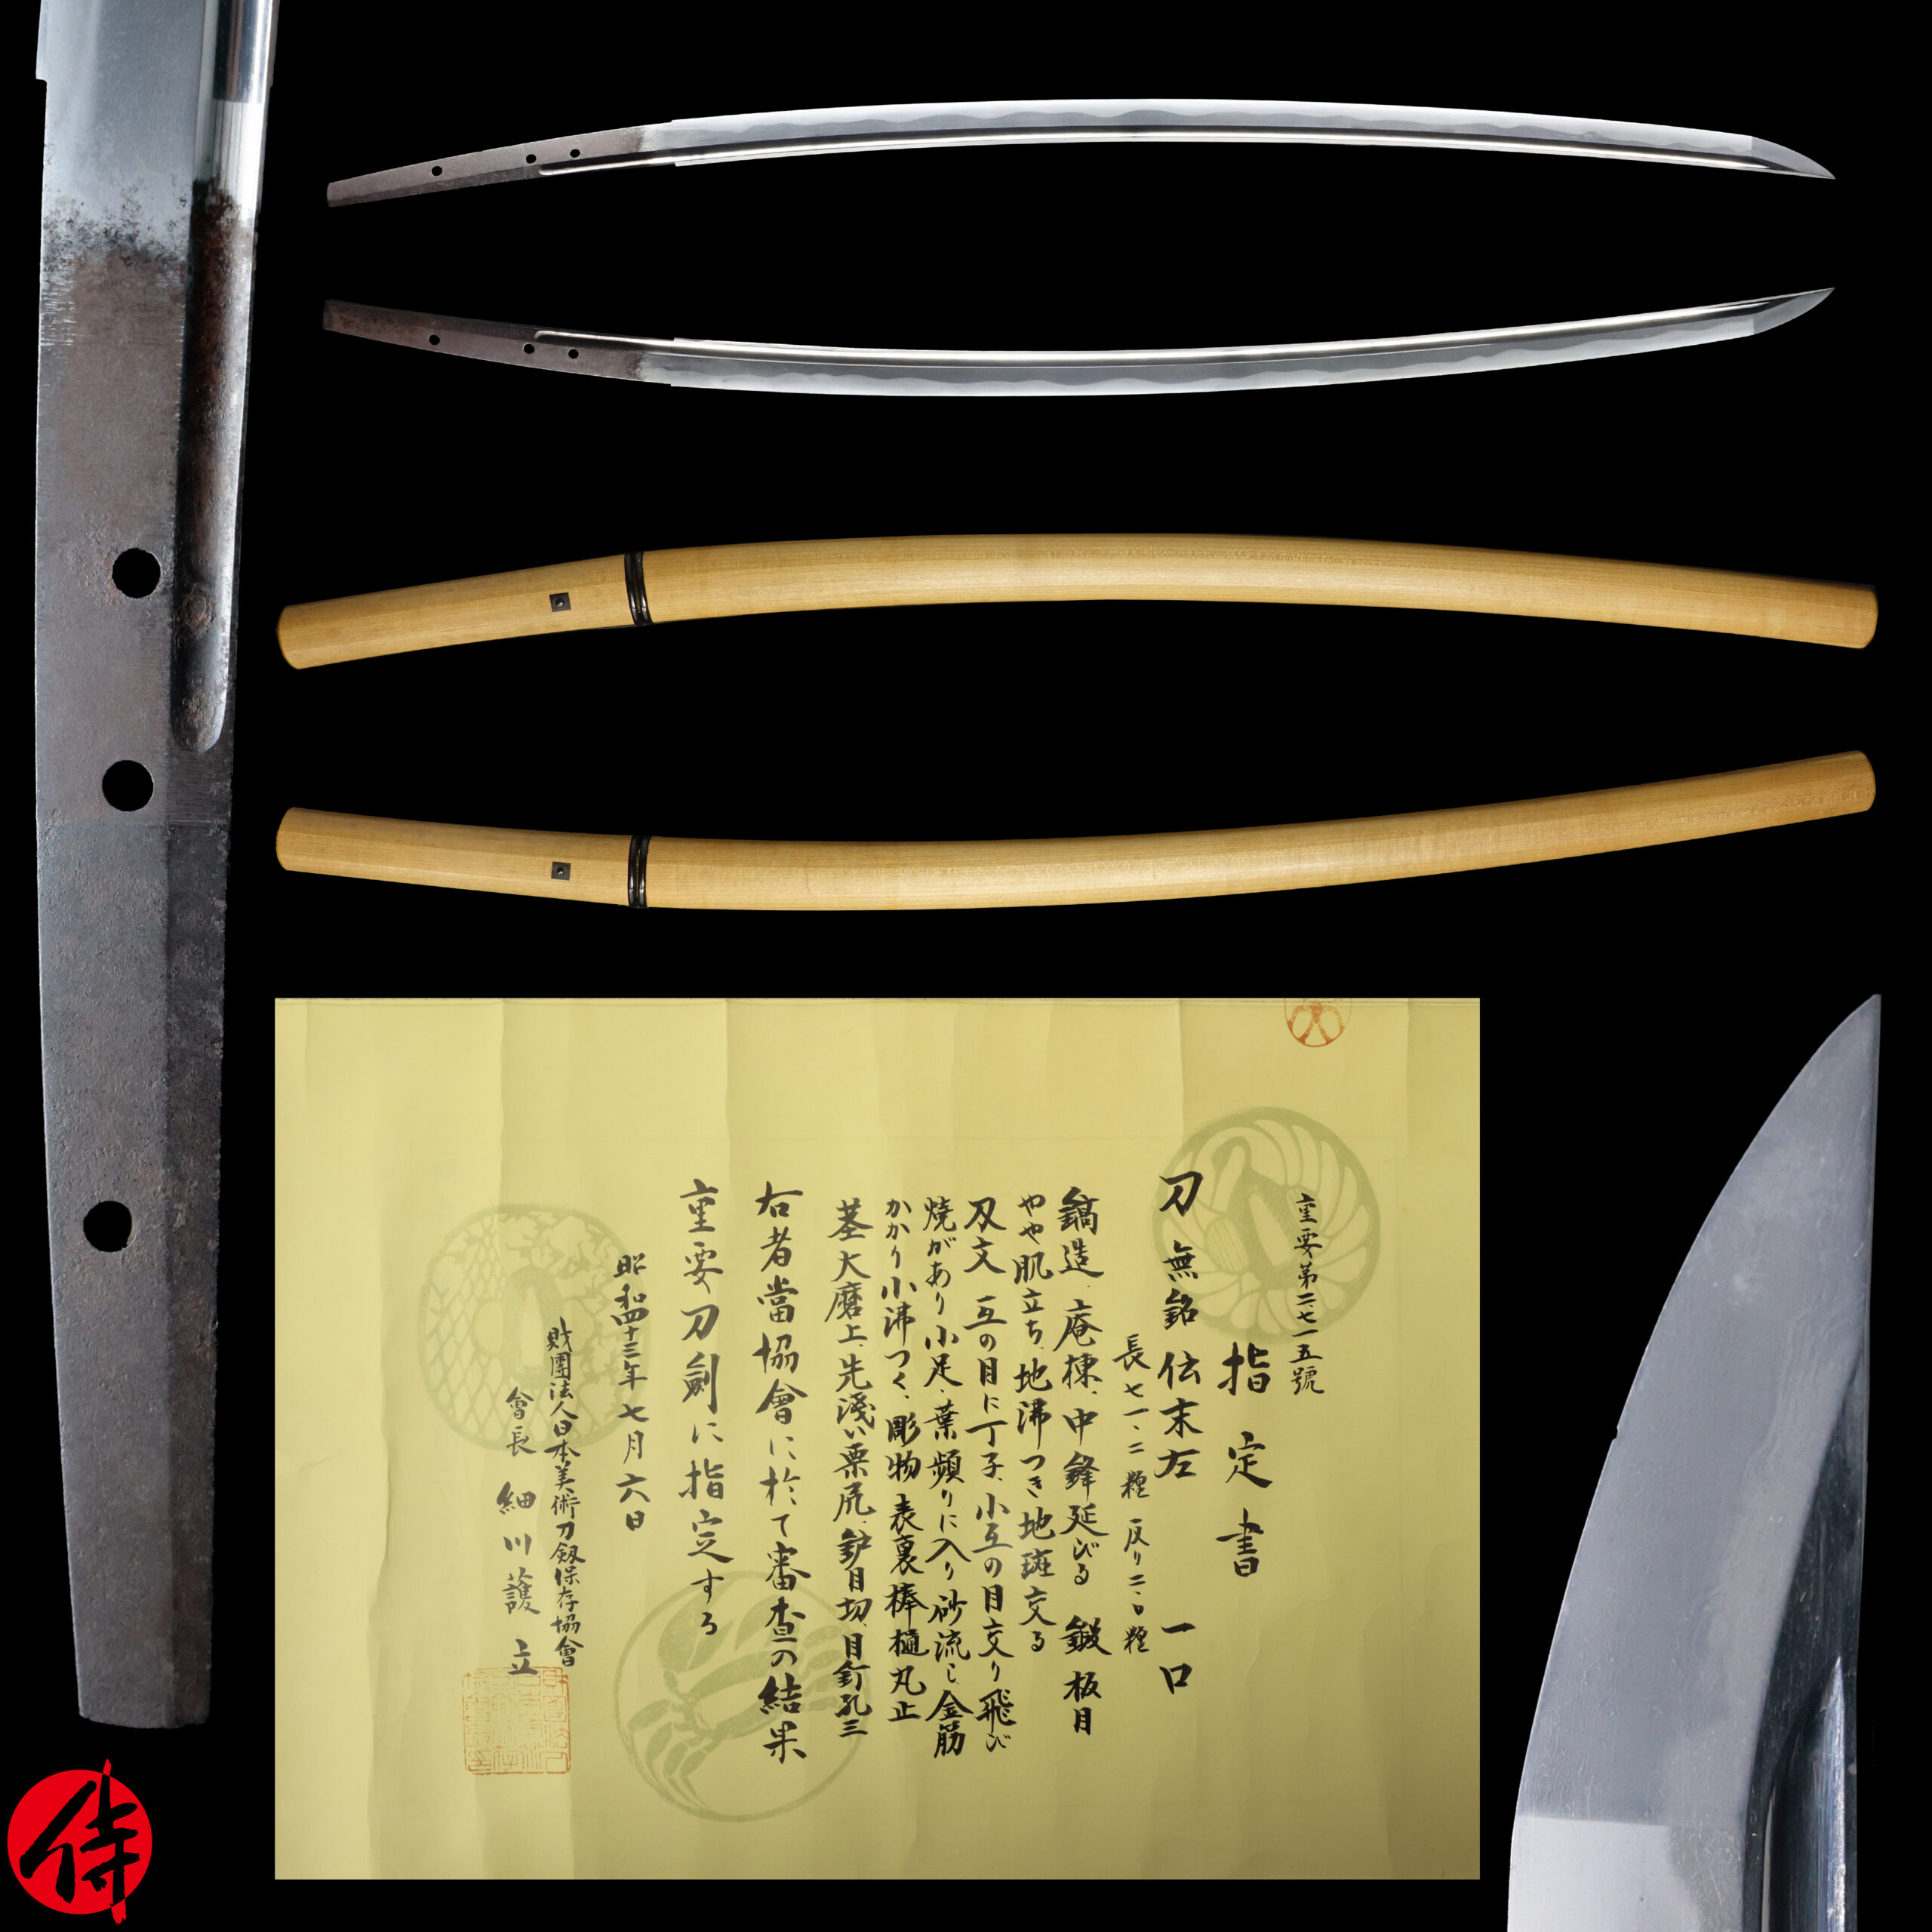 重要第二七一五號
指定書
刀 無銘 伝末左 一口
長 七一、二糎 反り 二、〇糎
鎬造、庵棟、中鋒延びる 鍛 板目
やや肌立ち、地沸つき地斑交る
刃文 互の目に丁子、小互の目交り飛び
焼があり小足、葉頻りに入り砂流し金筋
かかり小沸つく、彫物 表裏棒樋丸止
茎 大磨上、先浅い栗尻、鈩目切、目釘孔三
右者當協會に於て審査の結果
重要刀剣に指定する
昭和四十三年七月六日
財團法人日本美術刀剱保存協會
會長 細川護立
侍